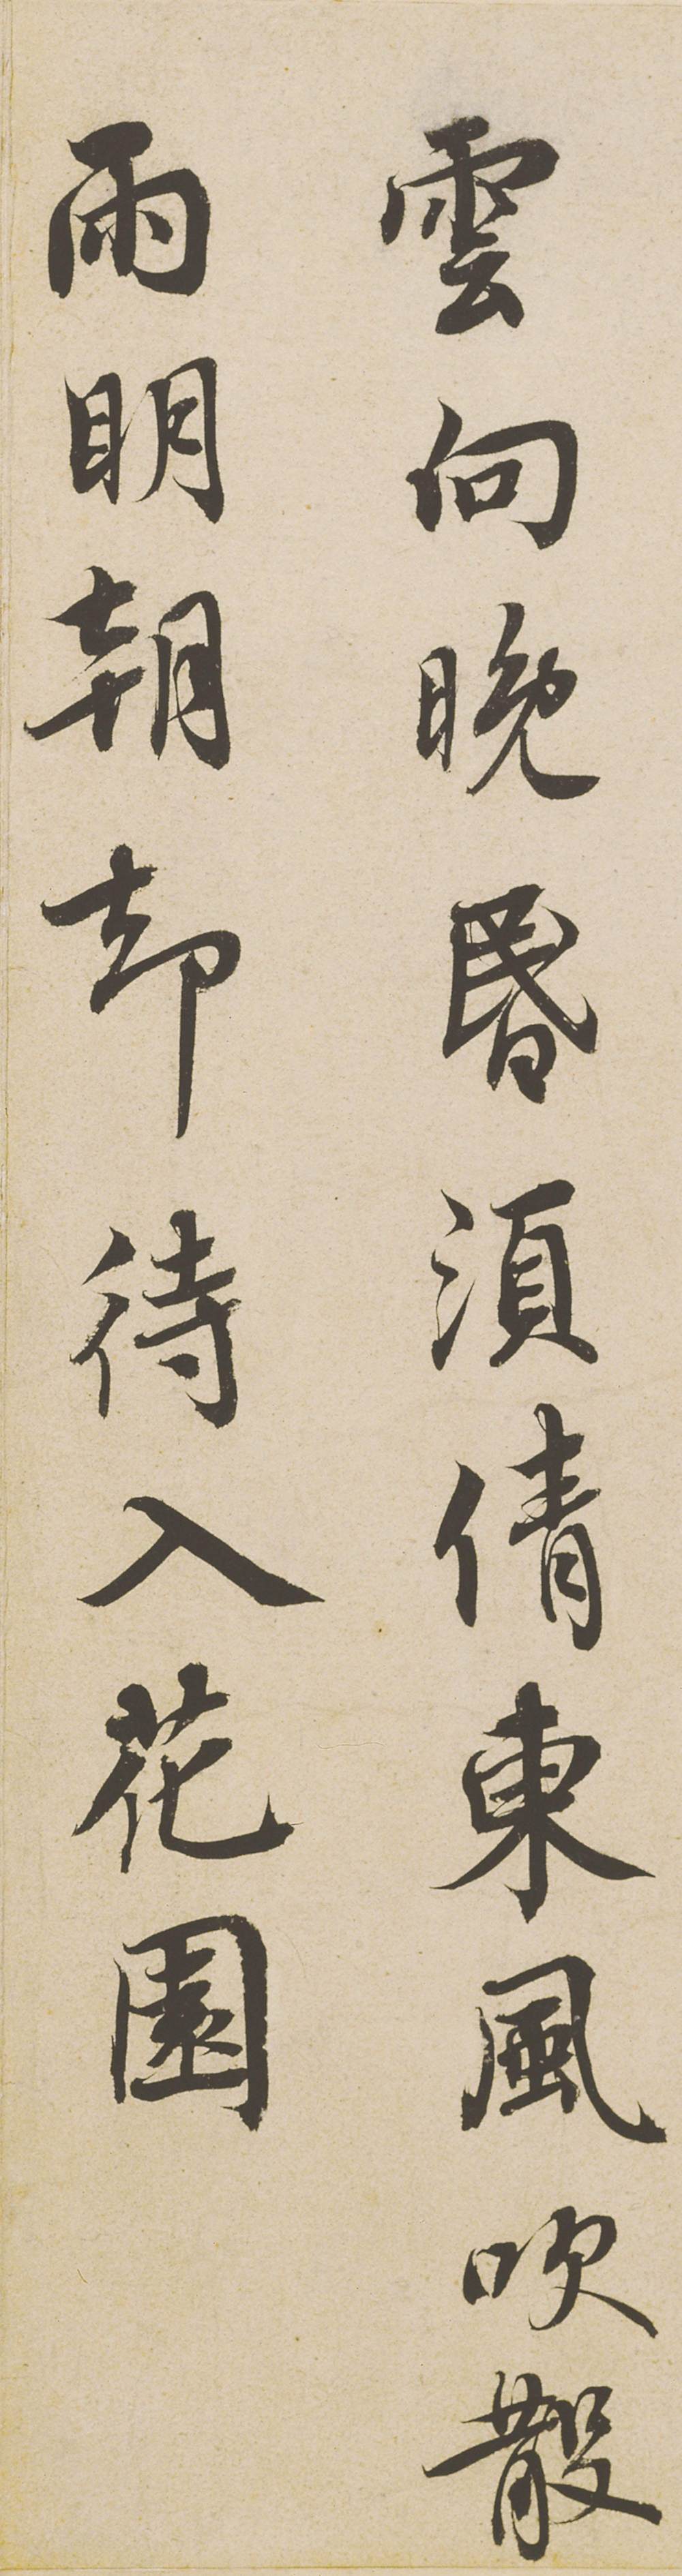 雲向晚昬須倩東風吹散
雨明朝却待入花園